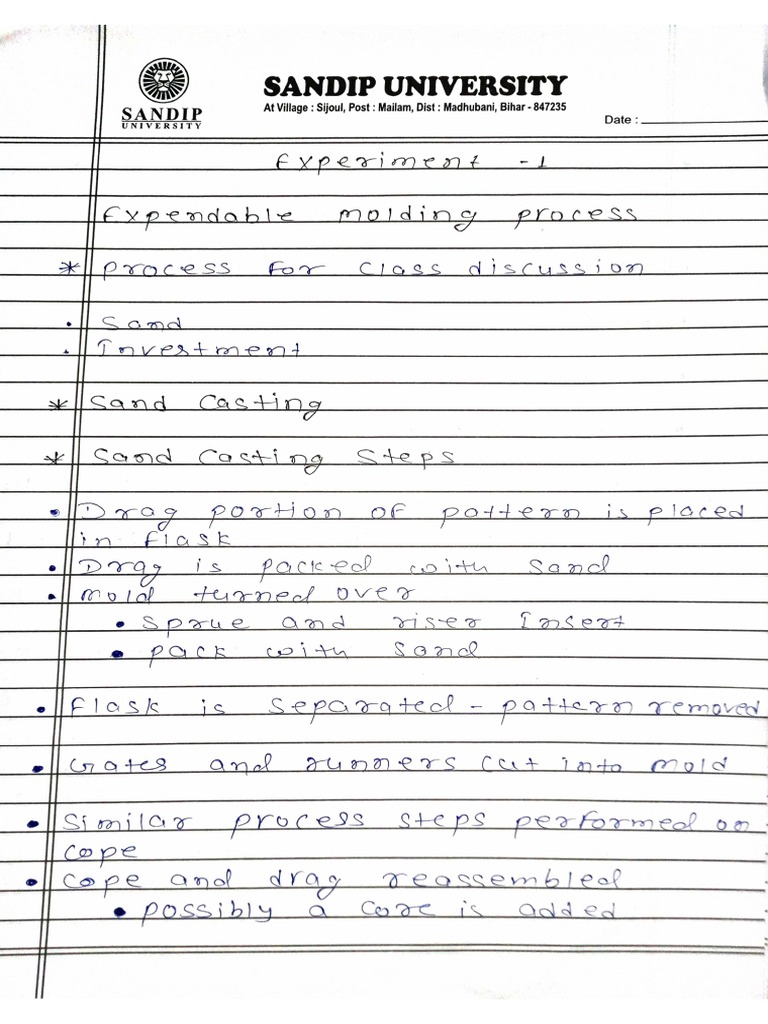 SANDIP UNIVERSITY
At Village : Sijoul, Post : Mailam, Dist : Madhubani, Bihar - 847235
SANDIP
UNIVERSITY
Date :
Experiment - 1
Expendable molding process
* process for class discussion
• Sand
• Investment
* Sand Casting
* Sand Casting Steps
• Drag portion of pattern is placed
in flask
• Drag is packed with sand
• mold turned over
• Sprue and riser Insert
• pack with sand
• Flask is separated - pattern removed
• Gates and runners cut into mold
• Similar process steps performed on
cope
• Cope and drag reassembled
• possibly a core is added